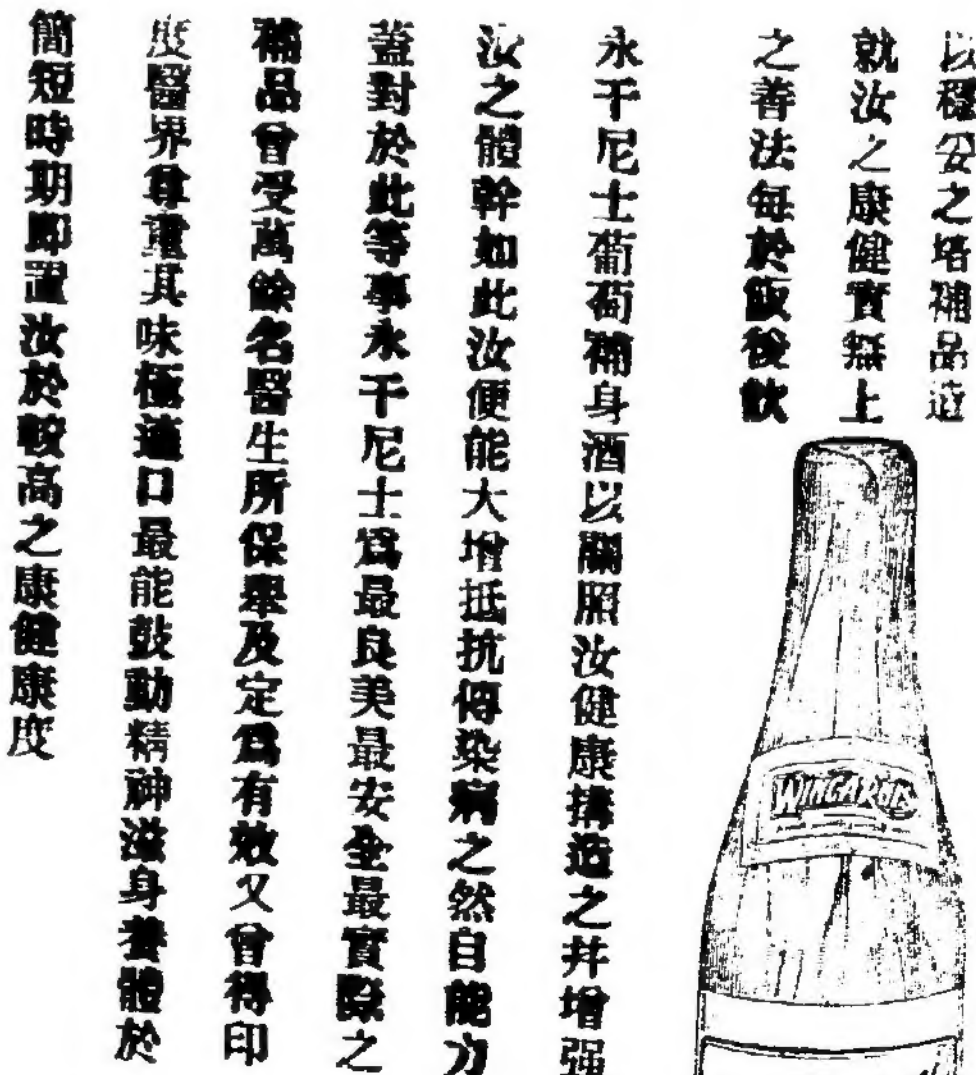 以穩妥之培補品造
就汝之康健實無上
之善法每於飯後飲
永干尼士葡萄補身酒以關照汝健康搆造之幷增强
汝之體幹如此汝便能大增抵抗傳染病之然自能力
蓋對於此等事永干尼士爲最良美最安全最實際之
補品曾受萬餘名醫生所保舉及定爲有效又曾得印
度醫界尊重其味極適口最能鼓動精神滋身養體於
簡短時期即置汝於較高之康健康度
WINCARNIS